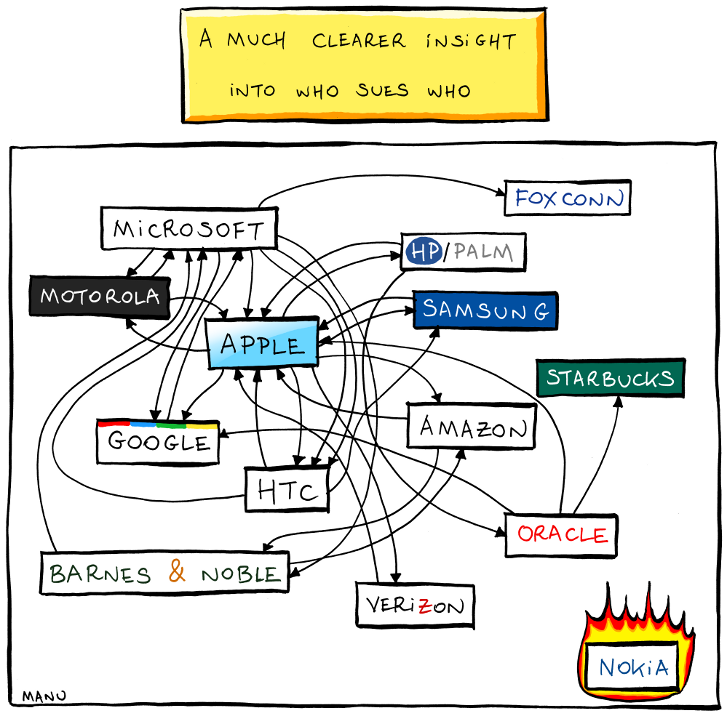 A MUCH CLEARER INSIGHT
INTO WHO SUES WHO
FOXCONN
MICROSOFT
HP/PALM
MOTOROLA
SAMSUNG
APPLE
STARBUCKS
AMAZON
GOOGLE
HTC
ORACLE
BARNES & NOBLE
VERIZON
NOKIA
MANU